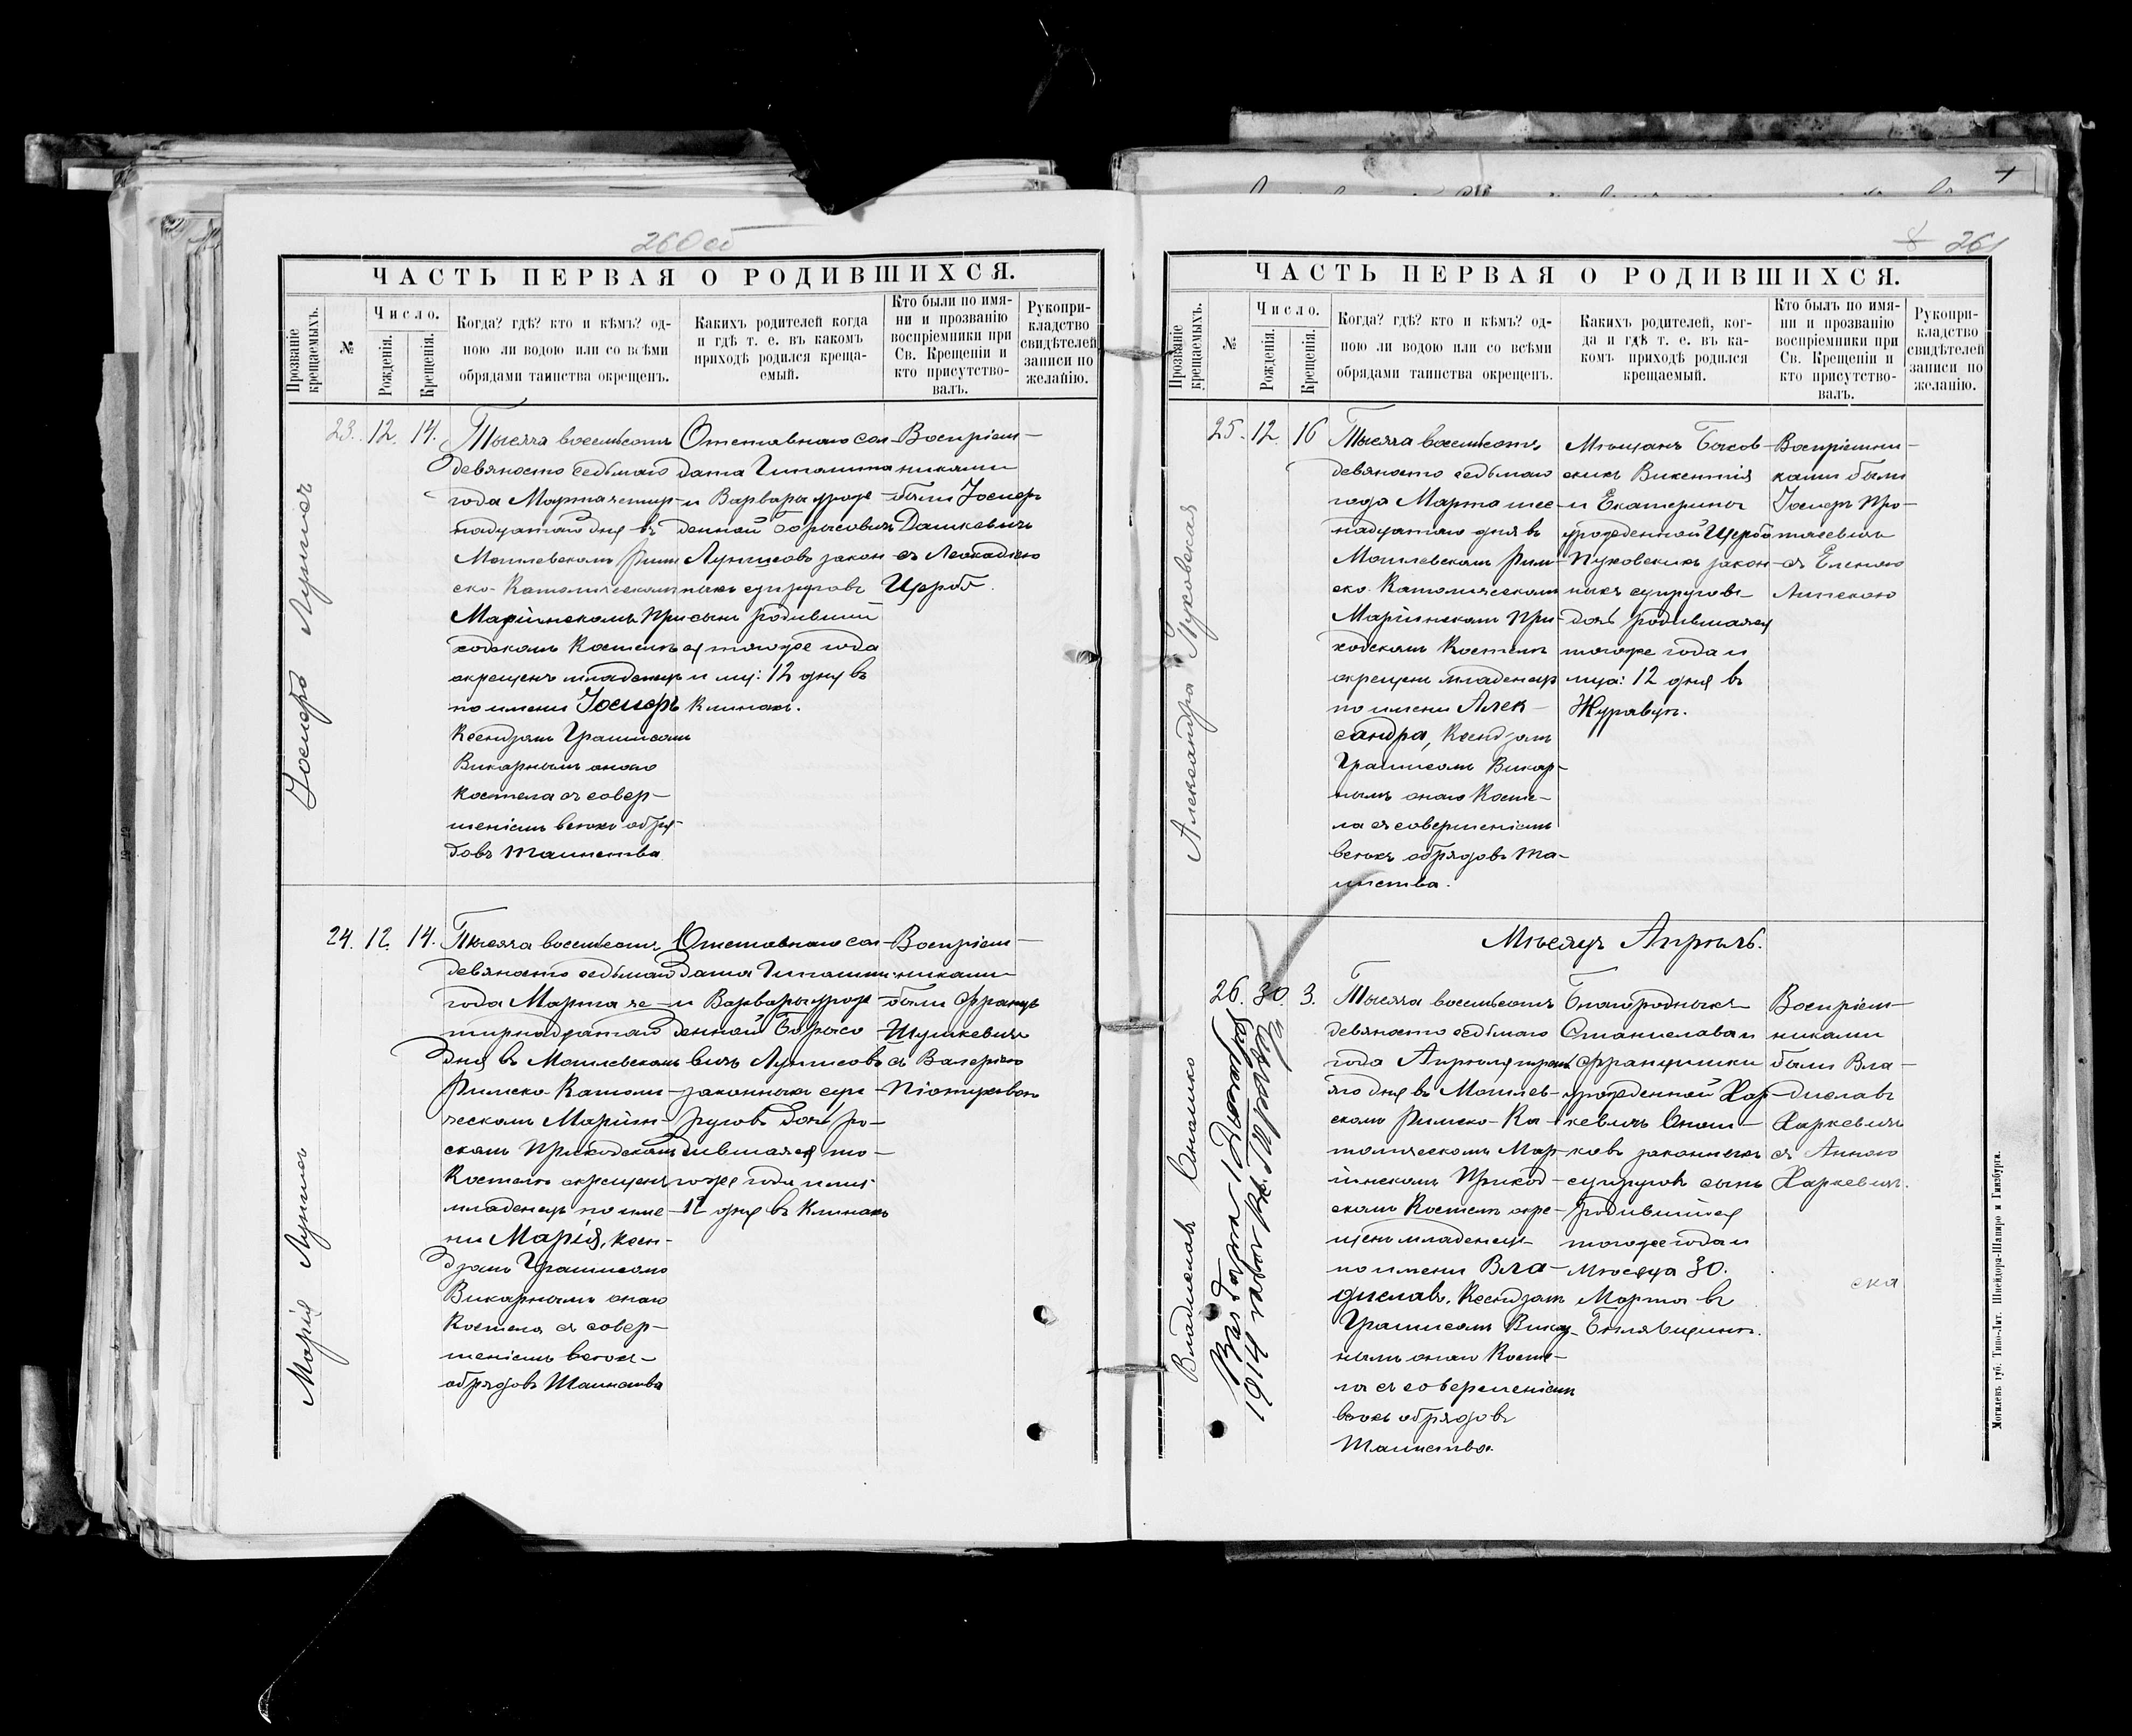 260 об
ЧАСТЬ ПЕРВАЯ О РОДИВШИХСЯ.
Прозваніе крещаемыхъ.
№
Число.
Рожденія.
Крещенія.
Когда? гдѣ? кто и кѣмъ? од-
ною ли водою или со всѣми
обрядами таинства окрещенъ.
Какихъ родителей когда
и гдѣ т. е. въ какомъ
приходѣ родился креща-
емый.
Кто были по имя-
ни и прозванію
воспріемники при
Св. Крещеніи и
кто присутство-
валъ.
Рукопри-
кладство
свидѣтелей
записи по
желанію.
Іосифъ
23. 12. 14.
Тысяча восемьсотъ
девяносто седьмаго
года Марта четыр-
надцатаго дня въ
Могилевскомъ Рим
ско-Католическомъ
Маріинскомъ При
ходскомъ Костелѣ
окрещенъ младенецъ
по имени Іосифъ
Ксендзомъ
Викарнымъ онаго
Костела съ совер-
шеніемъ всѣхъ обря-
довъ таинства
Отставного сол
дата
и Варвары урож
денной Борисовичъ
закон
ныхъ супруговъ
сынъ родивший
ся тогоже года
и мца: 12 дня въ
Климахъ.
Воспріем-
никами
были Іосифъ
Дашкевичъ
съ Леокадіею
Щербо.
Марія
24. 12. 14.
Тысяча восемьсотъ
девяносто седьмаго
года Марта че-
тырнадцатаго
дня въ Могилевскомъ
Римско-Католи-
ческомъ Маріин-
скомъ Приходскомъ
Костелѣ окрещенъ
младенецъ по име-
ни Марія, Ксен-
дзомъ
Викарнымъ онаго
Костела съ совер-
шеніемъ всѣхъ
обрядовъ Таинства
Отставного сол
дата
и Варвары урож
денной Борисо
вичъ
законныхъ суп
руговъ дочь ро-
дившаяся то-
гоже года и мца
12 дня въ Климахъ
Воспріем-
никами
были Францъ
Шушкевичъ
съ Валеріею
8 261
ЧАСТЬ ПЕРВАЯ О РОДИВШИХСЯ.
Прозваніе крещаемыхъ.
№
Число.
Рожденія.
Крещенія.
Когда? гдѣ? кто и кѣмъ? од-
ною ли водою или со всѣми
обрядами таинства окрещенъ.
Какихъ родителей, ког-
да и гдѣ т. е. въ ка-
комъ приходѣ родился
крещаемый.
Кто былъ по имя-
ни и прозванію
воспріемники при
Св. Крещеніи и
кто присутство-
валъ.
Рукопри-
кладство
свидѣтелей
записи по
желанію.
Александра Пуковская
25. 12. 16
Тысяча восемьсотъ
девяносто седьмаго
года Марта шес-
надцатаго дня въ
Могилевскомъ Рим-
ско-Католическомъ
Маріинскомъ При-
ходскомъ Костелѣ
окрещенъ младенецъ
по имени Алек-
сандра, Ксендзомъ
Викар-
нымъ онаго Косте-
ла съ совершеніемъ
всѣхъ обрядовъ Та-
инства.
Мѣщанъ Быхов-
скихъ Викентія
и Екатерины
урожденной Щербо
Пуковскихъ закон-
ныхъ супруговъ
дочь родившаяся
тогоже года и
мца: 12 дня въ
Воспріемни-
ками были
Іосифъ Про-
тасевичъ
съ Еленою
Липскою
Мѣсяцъ Апрѣль.
Владиславъ
26. 30. 3.
Тысяча восемьсотъ
девяносто седьмаго
года Апрѣля третья
яго дня въ Могилев-
скомъ Римско-Ка-
толическомъ Мар-
іинскомъ Приход-
скомъ Костелѣ окре-
щенъ младенецъ
по имени Вла-
диславъ, Ксендзомъ
Викар-
нымъ онаго Косте-
ла съ совершеніемъ
всѣхъ обрядовъ
Таинства.
Благородныхъ
Станислава и
Францишки
урожденной Хар-
кевичъ
ковъ законныхъ
супруговъ сынъ
родившийся
тогоже года и
Мѣсяца 30.
Марта въ
Воспріем-
никами
были Вла-
диславъ
Харкевичъ
съ Анною
Харкевичъ.
Могилевъ губ. Типо-Лит. Шнейдора-Шапиро и Гинзбурга.